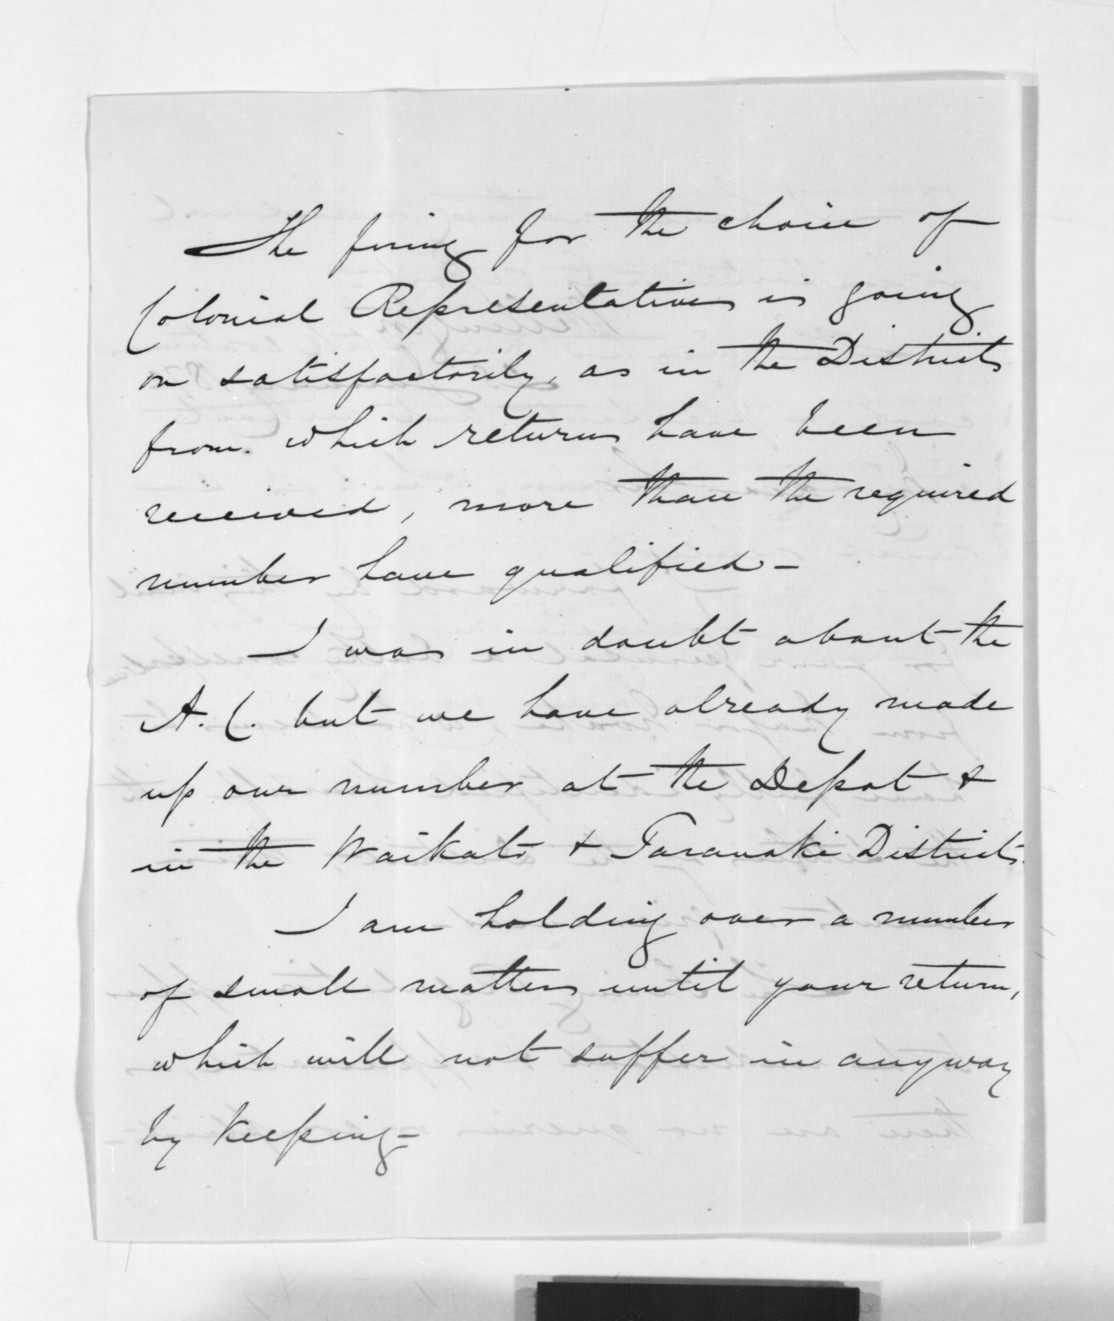 The firing for the choice of
Colonial Representatives is going
on satisfactorily, as in the Districts
from which returns have been
received, more than the required
number have qualified -
I was in doubt about the
A. C. but we have already made
up our number at the Depot &
in the Waikato & Taranaki Districts.
I am holding over a number
of small matters until your return,
which will not suffer in anyway
by keeping -